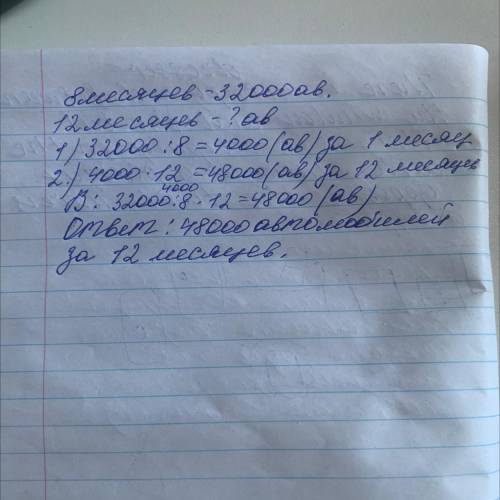 8 месяцев - 32000 ав.
12 месяцев - ? ав
1) 32000 : 8 = 4000 (ав) за 1 месяц
2.) 4000 · 12 = 48000 (ав) за 12 месяцев
4000
В: 32000 : 8 · 12 = 48000 (ав)
Ответ: 48000 автомобилей
за 12 месяцев.